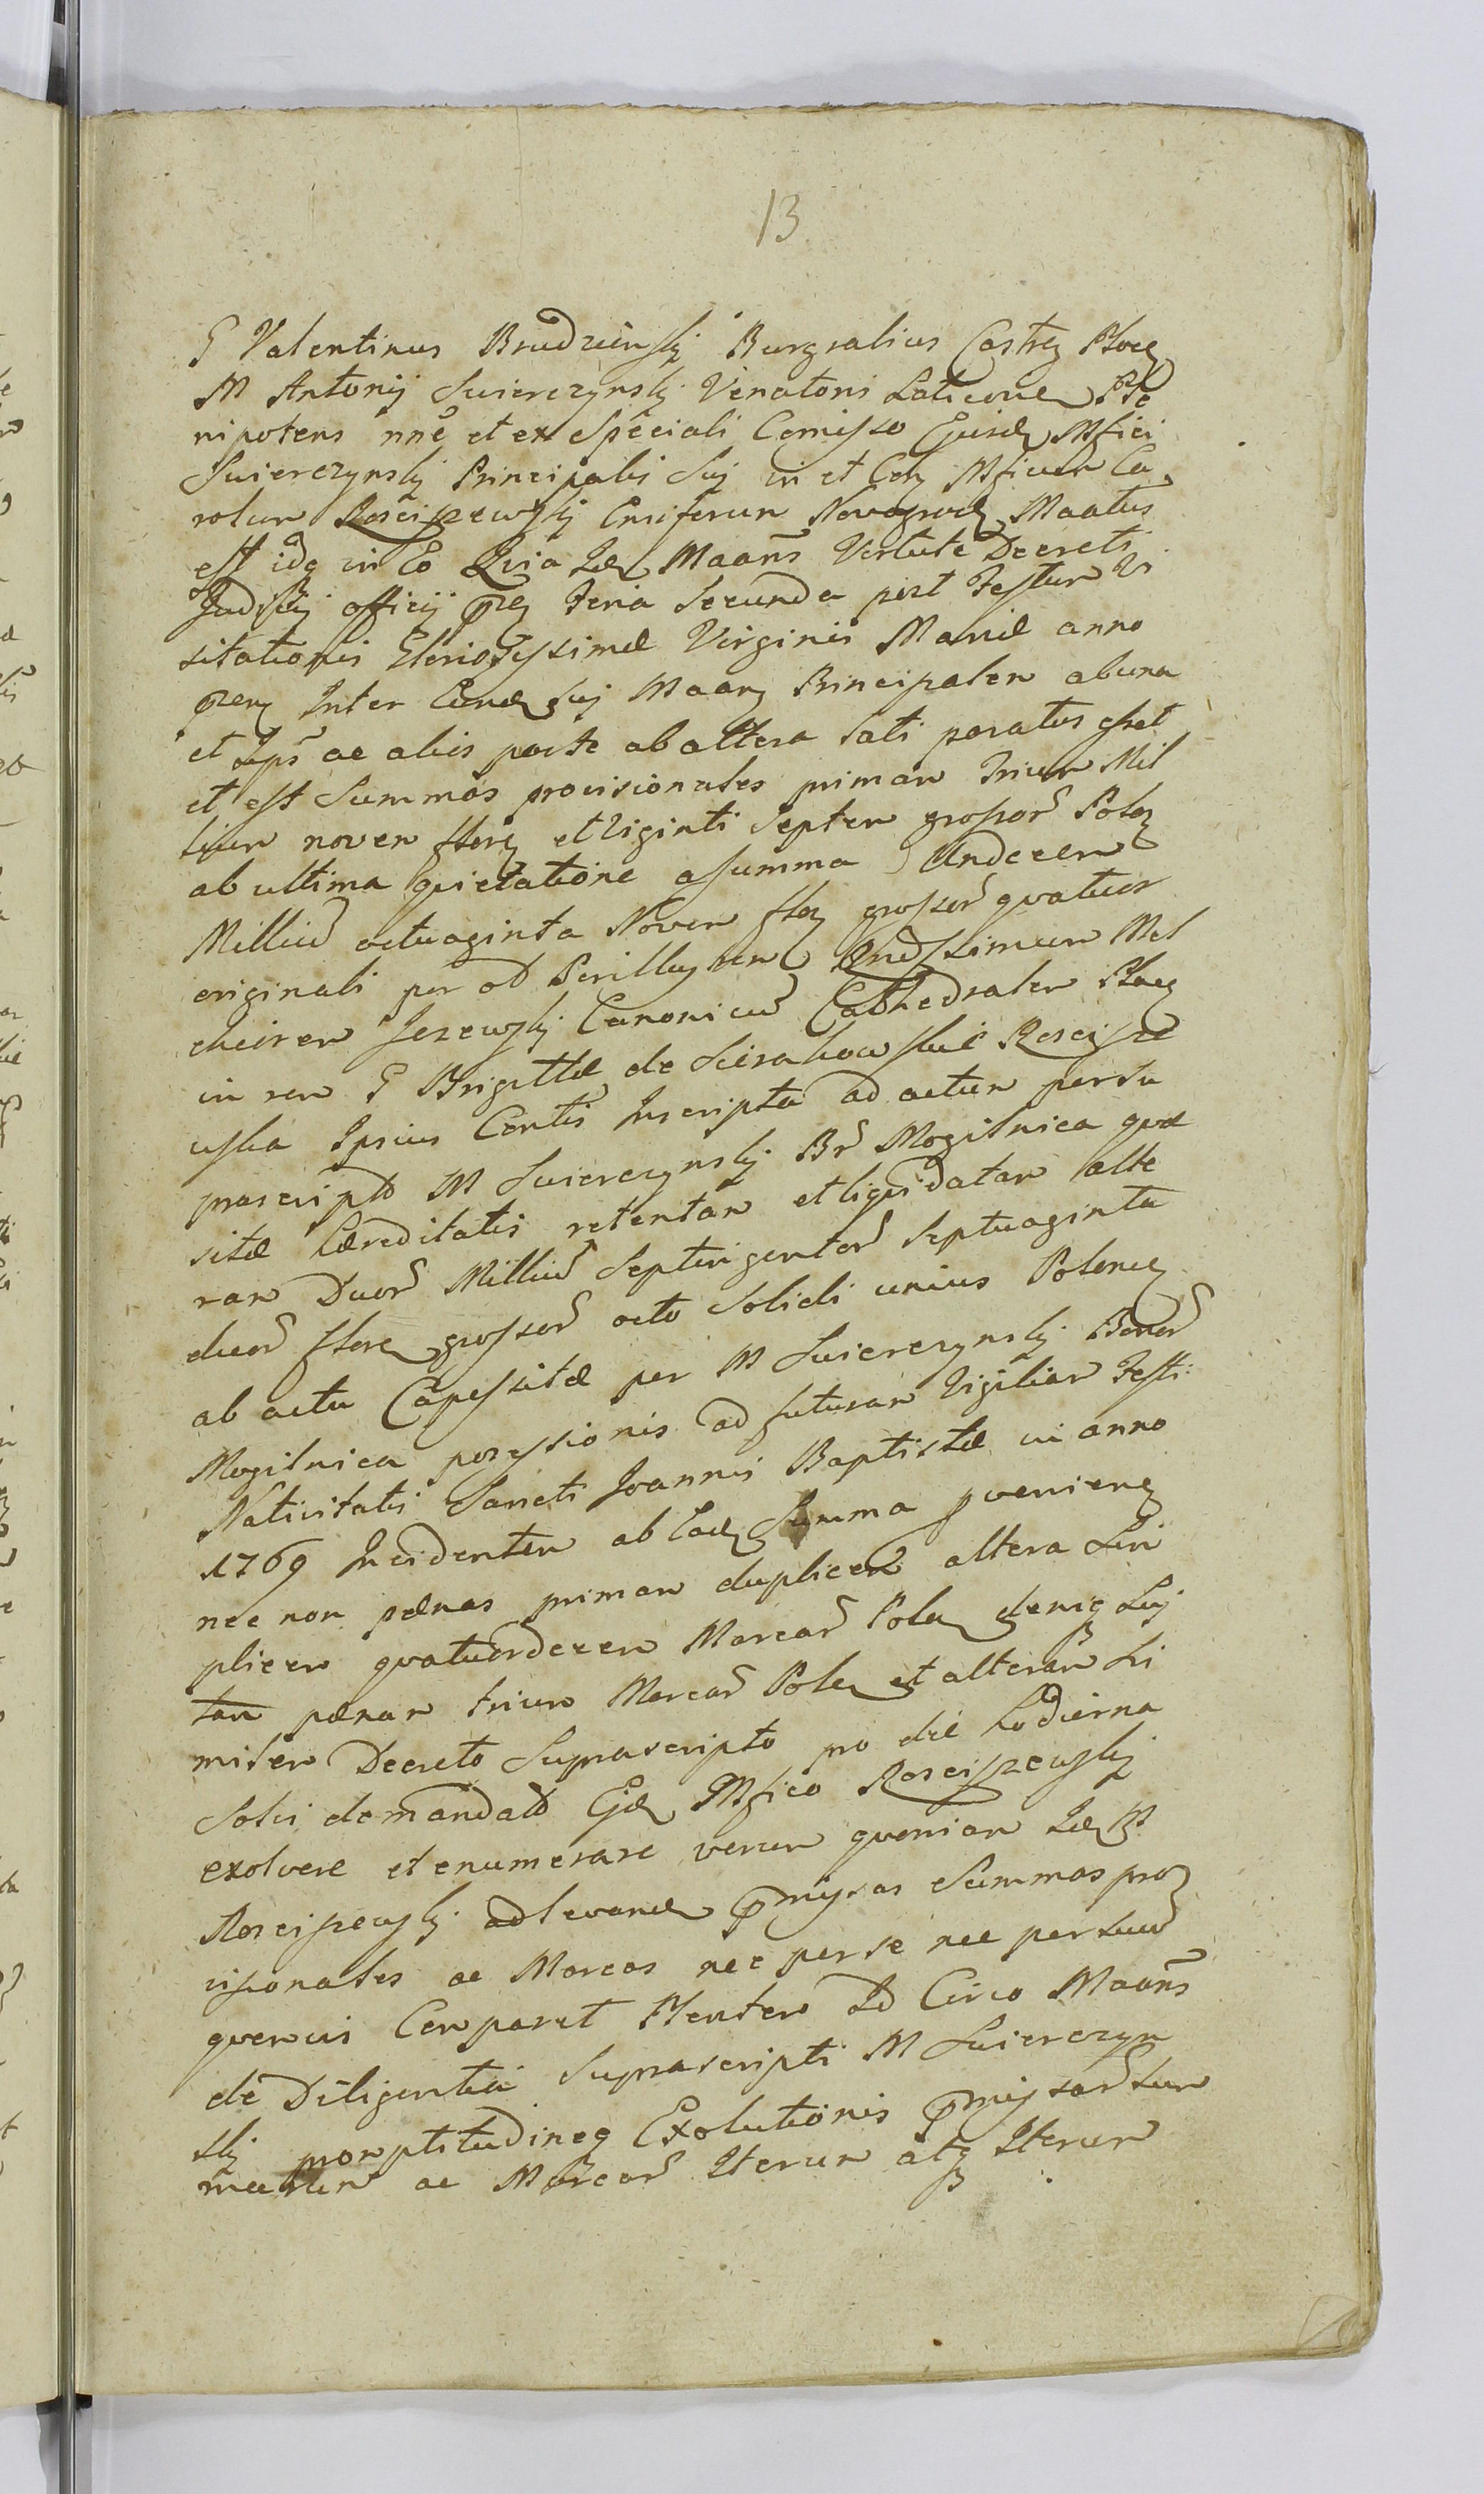 13
G Valentinus Brudzinskj Burgrabius Castrz Plocz
M Antonij Swierczynskj Venatoris Laticovien Ple
nipotens nne et ex Speciali Comisso Ejusd Mfici
Swierczynskj Principalis Suj in et Con Mficum Ca
rolum Rosciszewskj Ensiferum Novogrod Maatus
est idq in Eo Quia Id Maans Virtute Decreti
Judicij officij pn Feria Secunda post Festum Vi
sitationis Gloriosissimæ Virginis Mariæ anno
pnn Inter Eund suj Maan Principalem ab una
et Ips ac aliis parte ab altera Lati paratus esset
et est Summas provisionales primam Trium Mil
lium novem florn et Viginti Septem grossor Polon
ab ultima quietatione a summa Undecem
Milliu octuaginta Novem flor grossor quatuor
originali per od Perillustrem Rndssimum Mel
chiorem Jezewskj Canonicu Cathedralem Plocz
in rem G Brigittæ de Sierakowskie Roscisze
wska Ipsius Contis Inscripta ad actum per Su
prascripto M Swierczynskj Br Mogilnica quæ
sitæ hæreditatis retentam et liquidatam alte
ram Duor Milliu Septingentor Septuaginta
duor flore grossor octo Solidi unius Polonic
ab actu Capessitæ per M Swierczynskj Bonor
Mogilnica possessionis ad futuram Vigiliam Festi
Nativitatis Sancti Joannis Baptistæ in anno
1769 Incidentem ab Ead Summa pvenienz
nec non pænas primam duplicem altera Sim
plicem quatuordecem Marcar Polon deniq Luj
tam pænam trium Marcar Polon et alteram Si
milem Decreto Suprascripto pro die hodierna
Solvi demandato Ejd Mfico Rosciszewskj
exolvere et enumerare verum quoniam Id M
Rosciszewskj ad levand pmissas Summas prov
isionales ac Marcas nec per se nec per suu
quemvis Comparet Plentem Id Circo Maans
de Diligentia Suprascripti M Swierczyn
skj promptitudineq Exolutionis pmissar Sum
marum ac Marcar Iterum atq Iterum